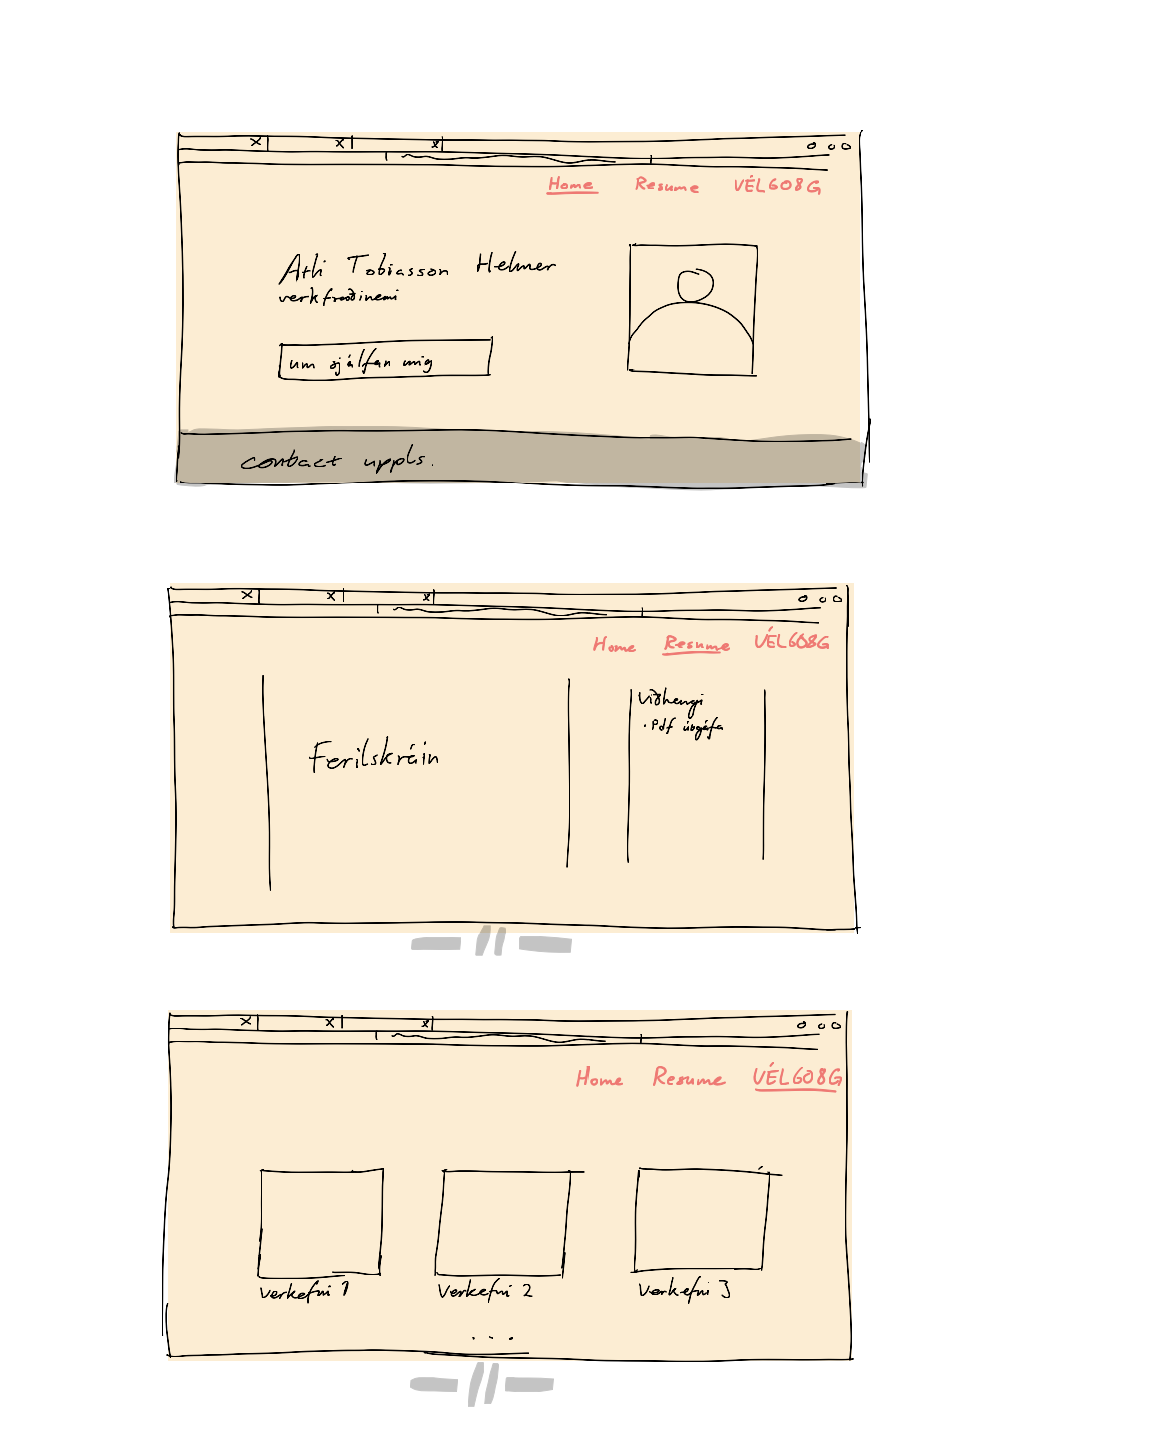 Home Resume VÉL608G
Atli Tobiasson Helmer
verkfræðinemi
um sjálfan mig
contact uppls.
Home Resume VÉL608G
Viðhengi
• Pdf útgáfa
Ferilskráin
Home Resume VÉL608G
Verkefni 1
Verkefni 2
Verkefni 3
...